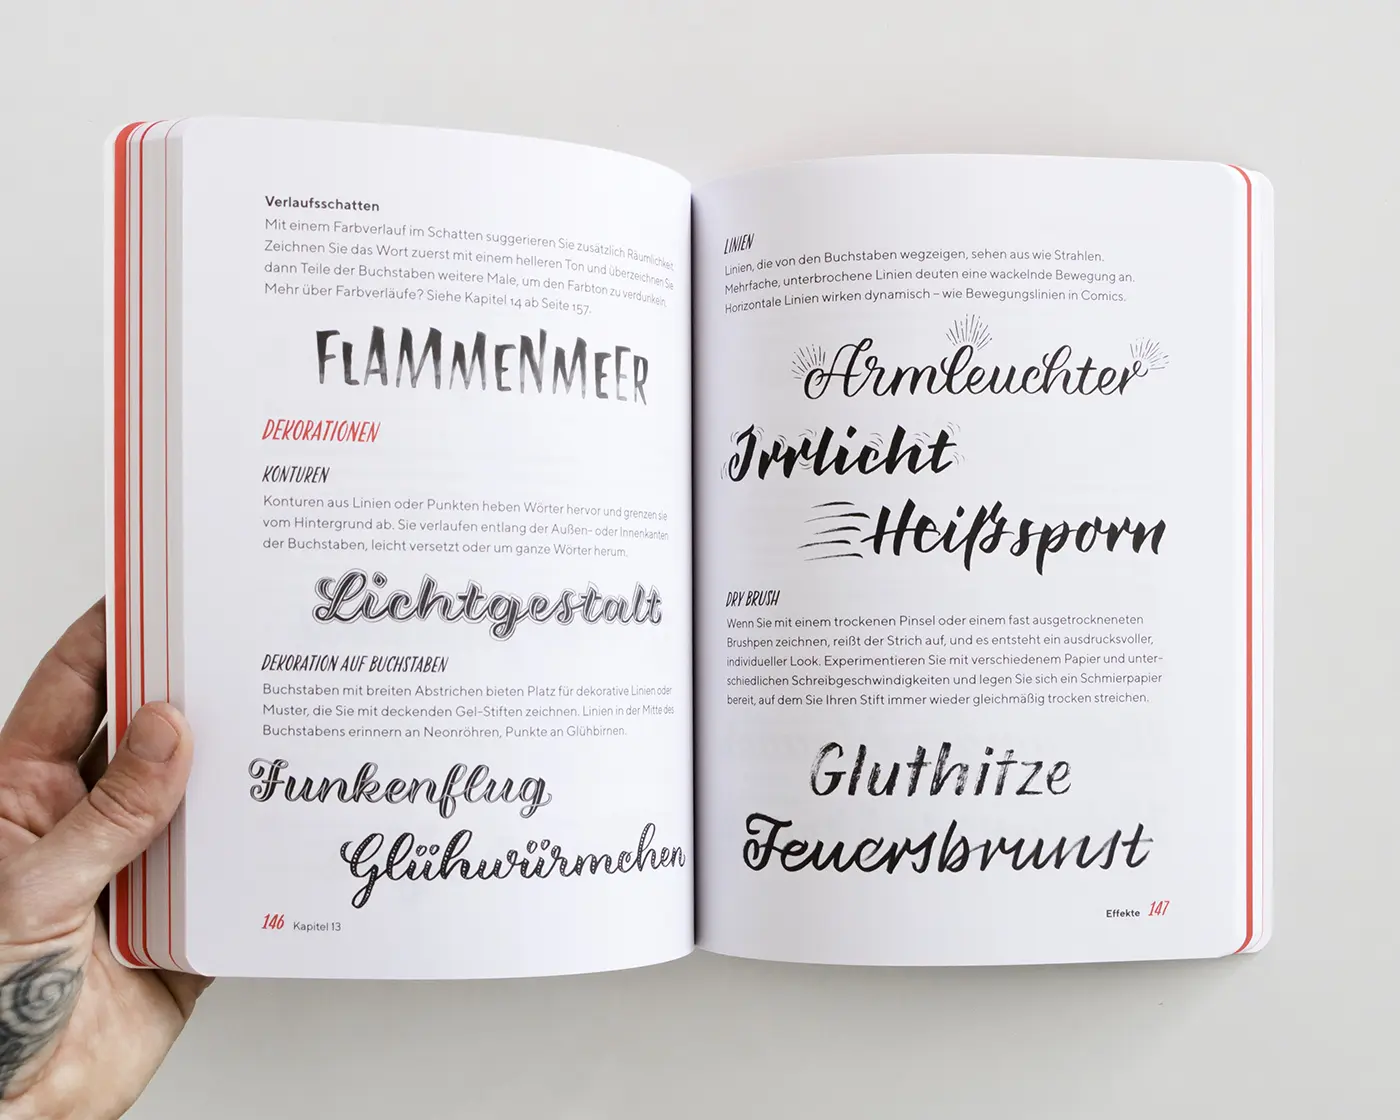 Verlaufsschatten
Mit einem Farbverlauf im Schatten suggerieren Sie zusätzlich Räumlichkeit.
Zeichnen Sie das Wort zuerst mit einem helleren Ton und überzeichnen Sie
dann Teile der Buchstaben weitere Male, um den Farbton zu verdunkeln.
Mehr über Farbverläufe? Siehe Kapitel 14 ab Seite 157.
FLAMMENMEER
DEKORATIONEN
KONTUREN
Konturen aus Linien oder Punkten heben Wörter hervor und grenzen sie
vom Hintergrund ab. Sie verlaufen entlang der Außen- oder Innenkanten
der Buchstaben, leicht versetzt oder um ganze Wörter herum.
Lichtgestalt
DEKORATION AUF BUCHSTABEN
Buchstaben mit breiten Abstrichen bieten Platz für dekorative Linien oder
Muster, die Sie mit deckenden Gel-Stiften zeichnen. Linien in der Mitte des
Buchstabens erinnern an Neonröhren, Punkte an Glühbirnen.
Funkenflug
Glühwürmchen
146 Kapitel 13
LINIEN
Linien, die von den Buchstaben wegzeigen, sehen aus wie Strahlen.
Mehrfache, unterbrochene Linien deuten eine wackelnde Bewegung an.
Horizontale Linien wirken dynamisch – wie Bewegungslinien in Comics.
Armleuchter
Irrlicht
Heißsporn
DRY BRUSH
Wenn Sie mit einem trockenen Pinsel oder einem fast ausgetrockneten
Brushpen zeichnen, reißt der Strich auf, und es entsteht ein ausdrucksvoller,
individueller Look. Experimentieren Sie mit verschiedenem Papier und unter-
schiedlichen Schreibgeschwindigkeiten und legen Sie sich ein Schmierpapier
bereit, auf dem Sie Ihren Stift immer wieder gleichmäßig trocken streichen.
Gluthitze
Feuersbrunst
Effekte 147